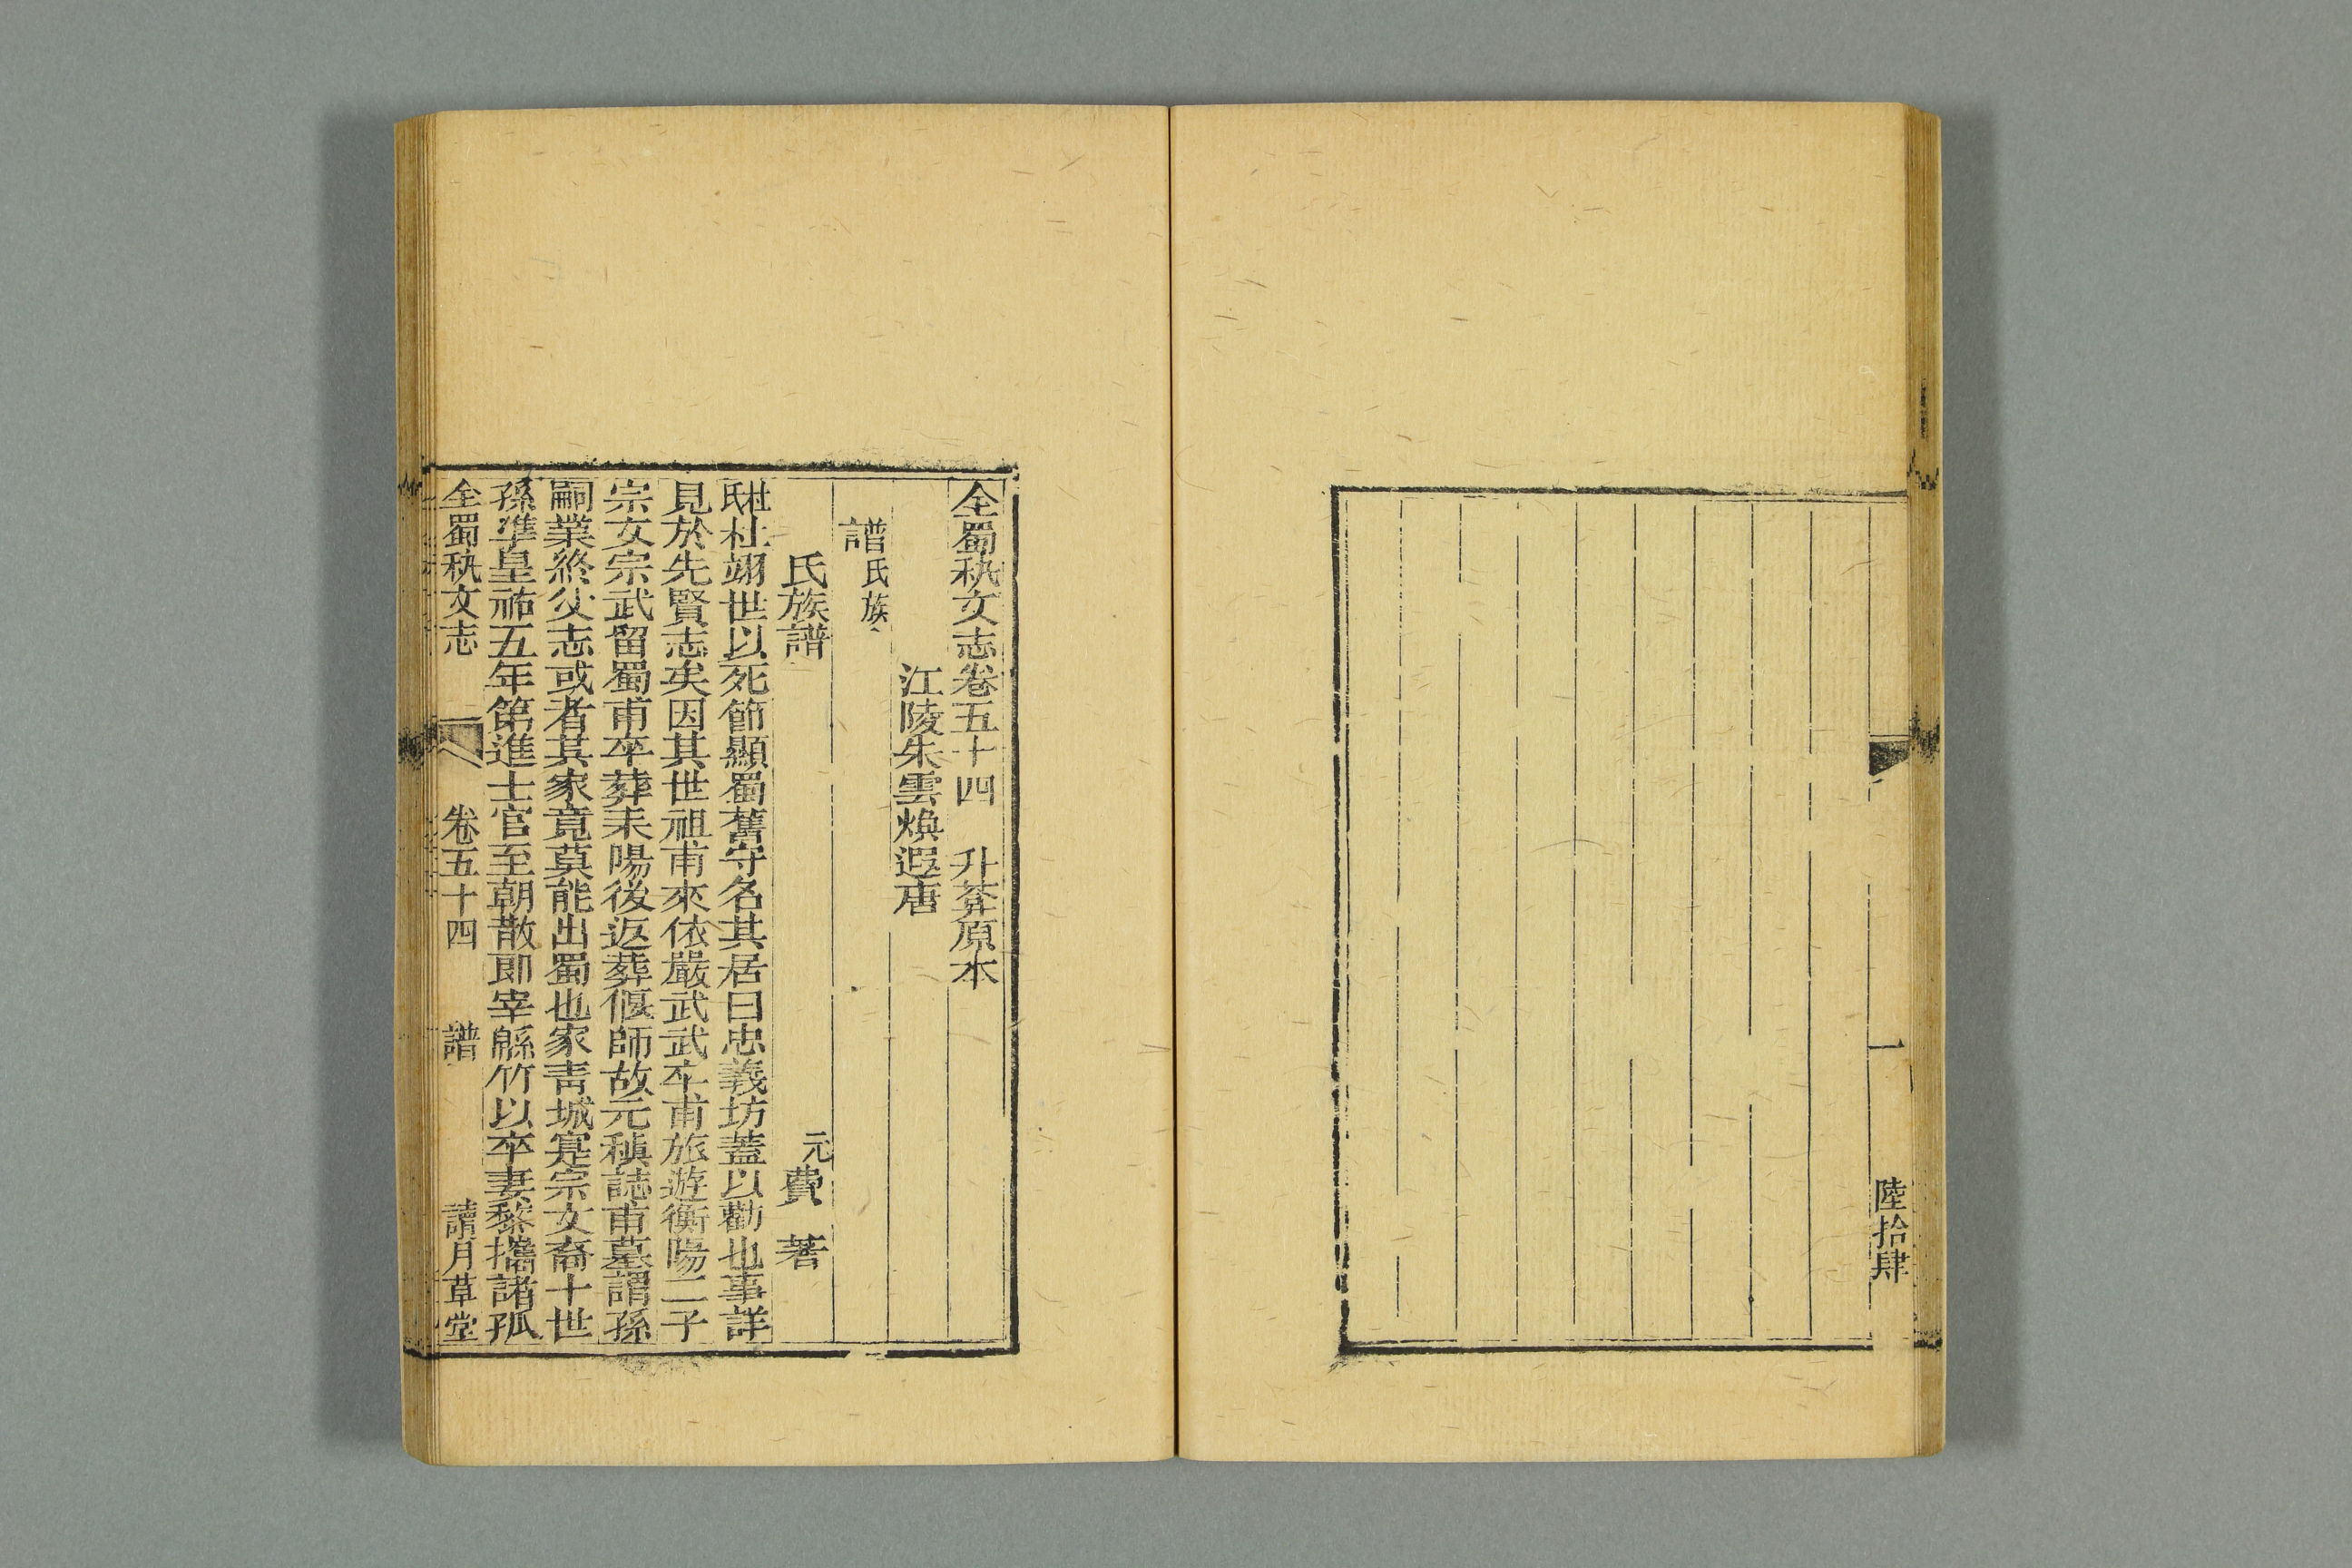 一
陸拾肆
全蜀秇文志卷五十四 升菴原本
江陵朱雲煥遐唐
譜氏族
氏族譜 元費 著
杜氏杜翊世以死節顯蜀舊守名其居曰忠義坊蓋以勸也事詳
見於先賢志矣因其世祖甫來依嚴武武卒甫旅遊衡陽二子
宗文宗武留蜀甫卒葬耒陽後返葬偃師故元稹誌甫墓謂孫
嗣業終父志或者其家竟莫能出蜀也家靑城寔宗文裔十世
孫準皇祐五年第進士官至朝散郎宰緜竹以卒妻黎攜諸孤
全蜀秇文志 卷五十四 譜 讀月草堂